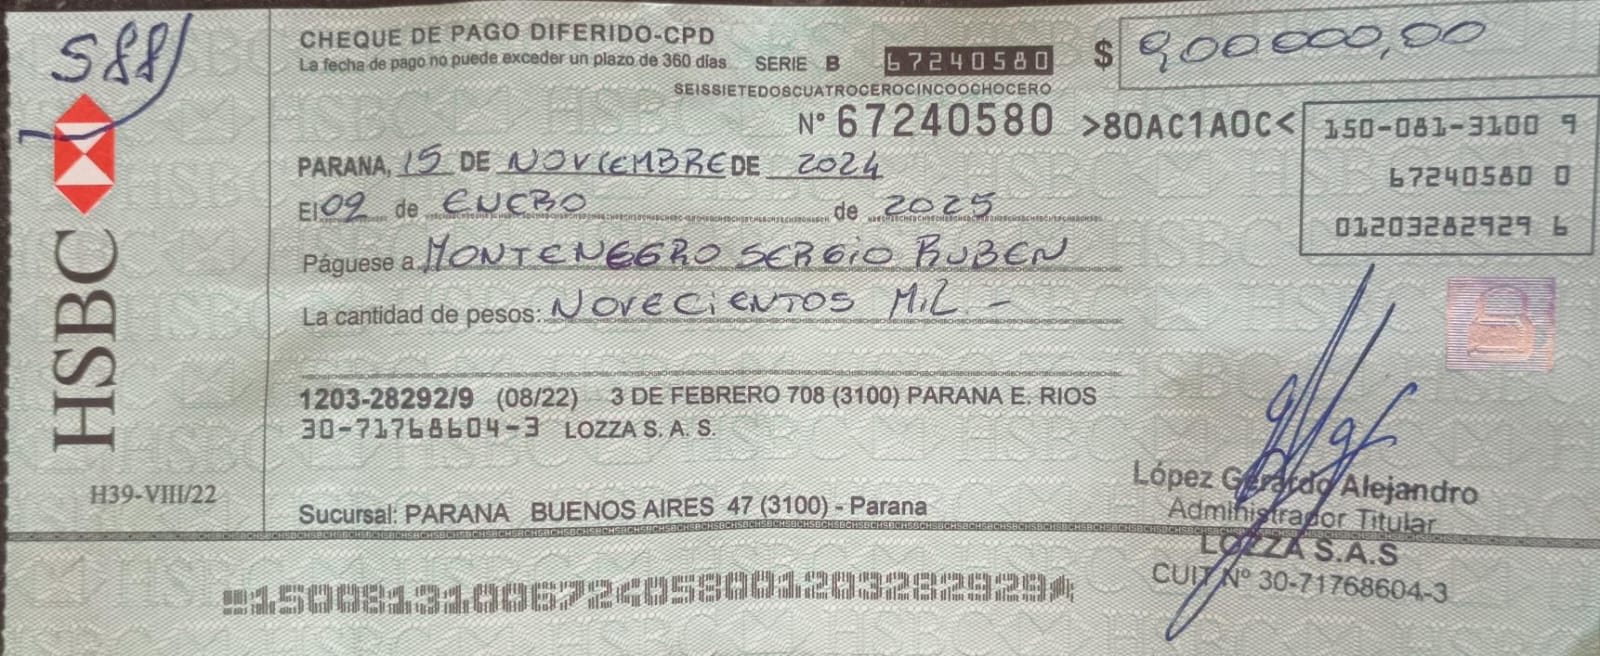 588
CHEQUE DE PAGO DIFERIDO-CPD
La fecha de pago no puede exceder un plazo de 360 días SERIE B 67240580 $ 900000,00
SEISSIETEDOSCUATROCEROCINCOOCHOCERO
N° 67240580 >80AC1A0C< 150-081-3100 9
67240580 0
01203282929 6
PARANA, 15 DE NOVIEMBRE DE 2024
El 09 de ENERO de 2025
Páguese a MONTENEGRO SERGIO RUBEN
La cantidad de pesos: NOVECIENTOS MIL -
HSBC
1203-28292/9 (08/22) 3 DE FEBRERO 708 (3100) PARANA E. RIOS
30-71768604-3 LOZZA S. A. S.
H39-VIII/22
Sucursal: PARANA BUENOS AIRES 47 (3100) - Parana
López Gerardo Alejandro
Administrador Titular
LOZZA S.A.S
CUIT Nº 30-71768604-3
15008131006724058001203282929